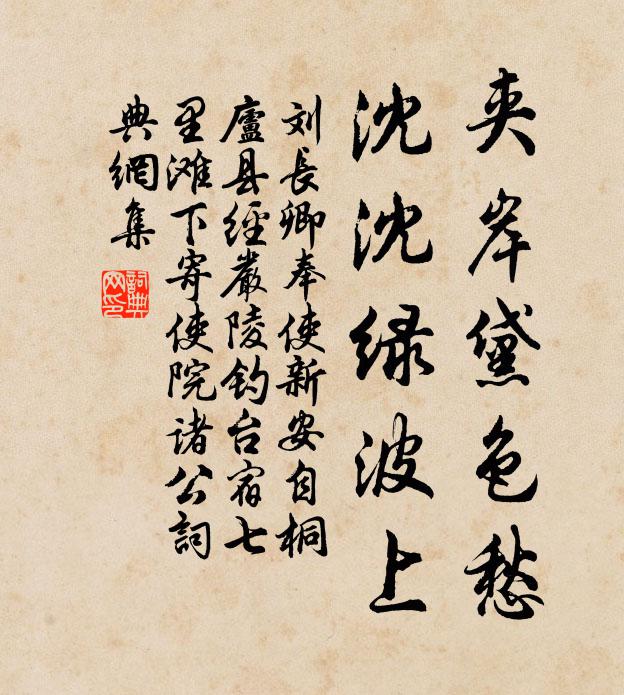 夹岸黛色愁
沈沈绿波上
刘長卿奉使新安自桐
廬县經嚴陵钓台宿七
里滩下寄使院诸公詞
典網集
詞典
网印